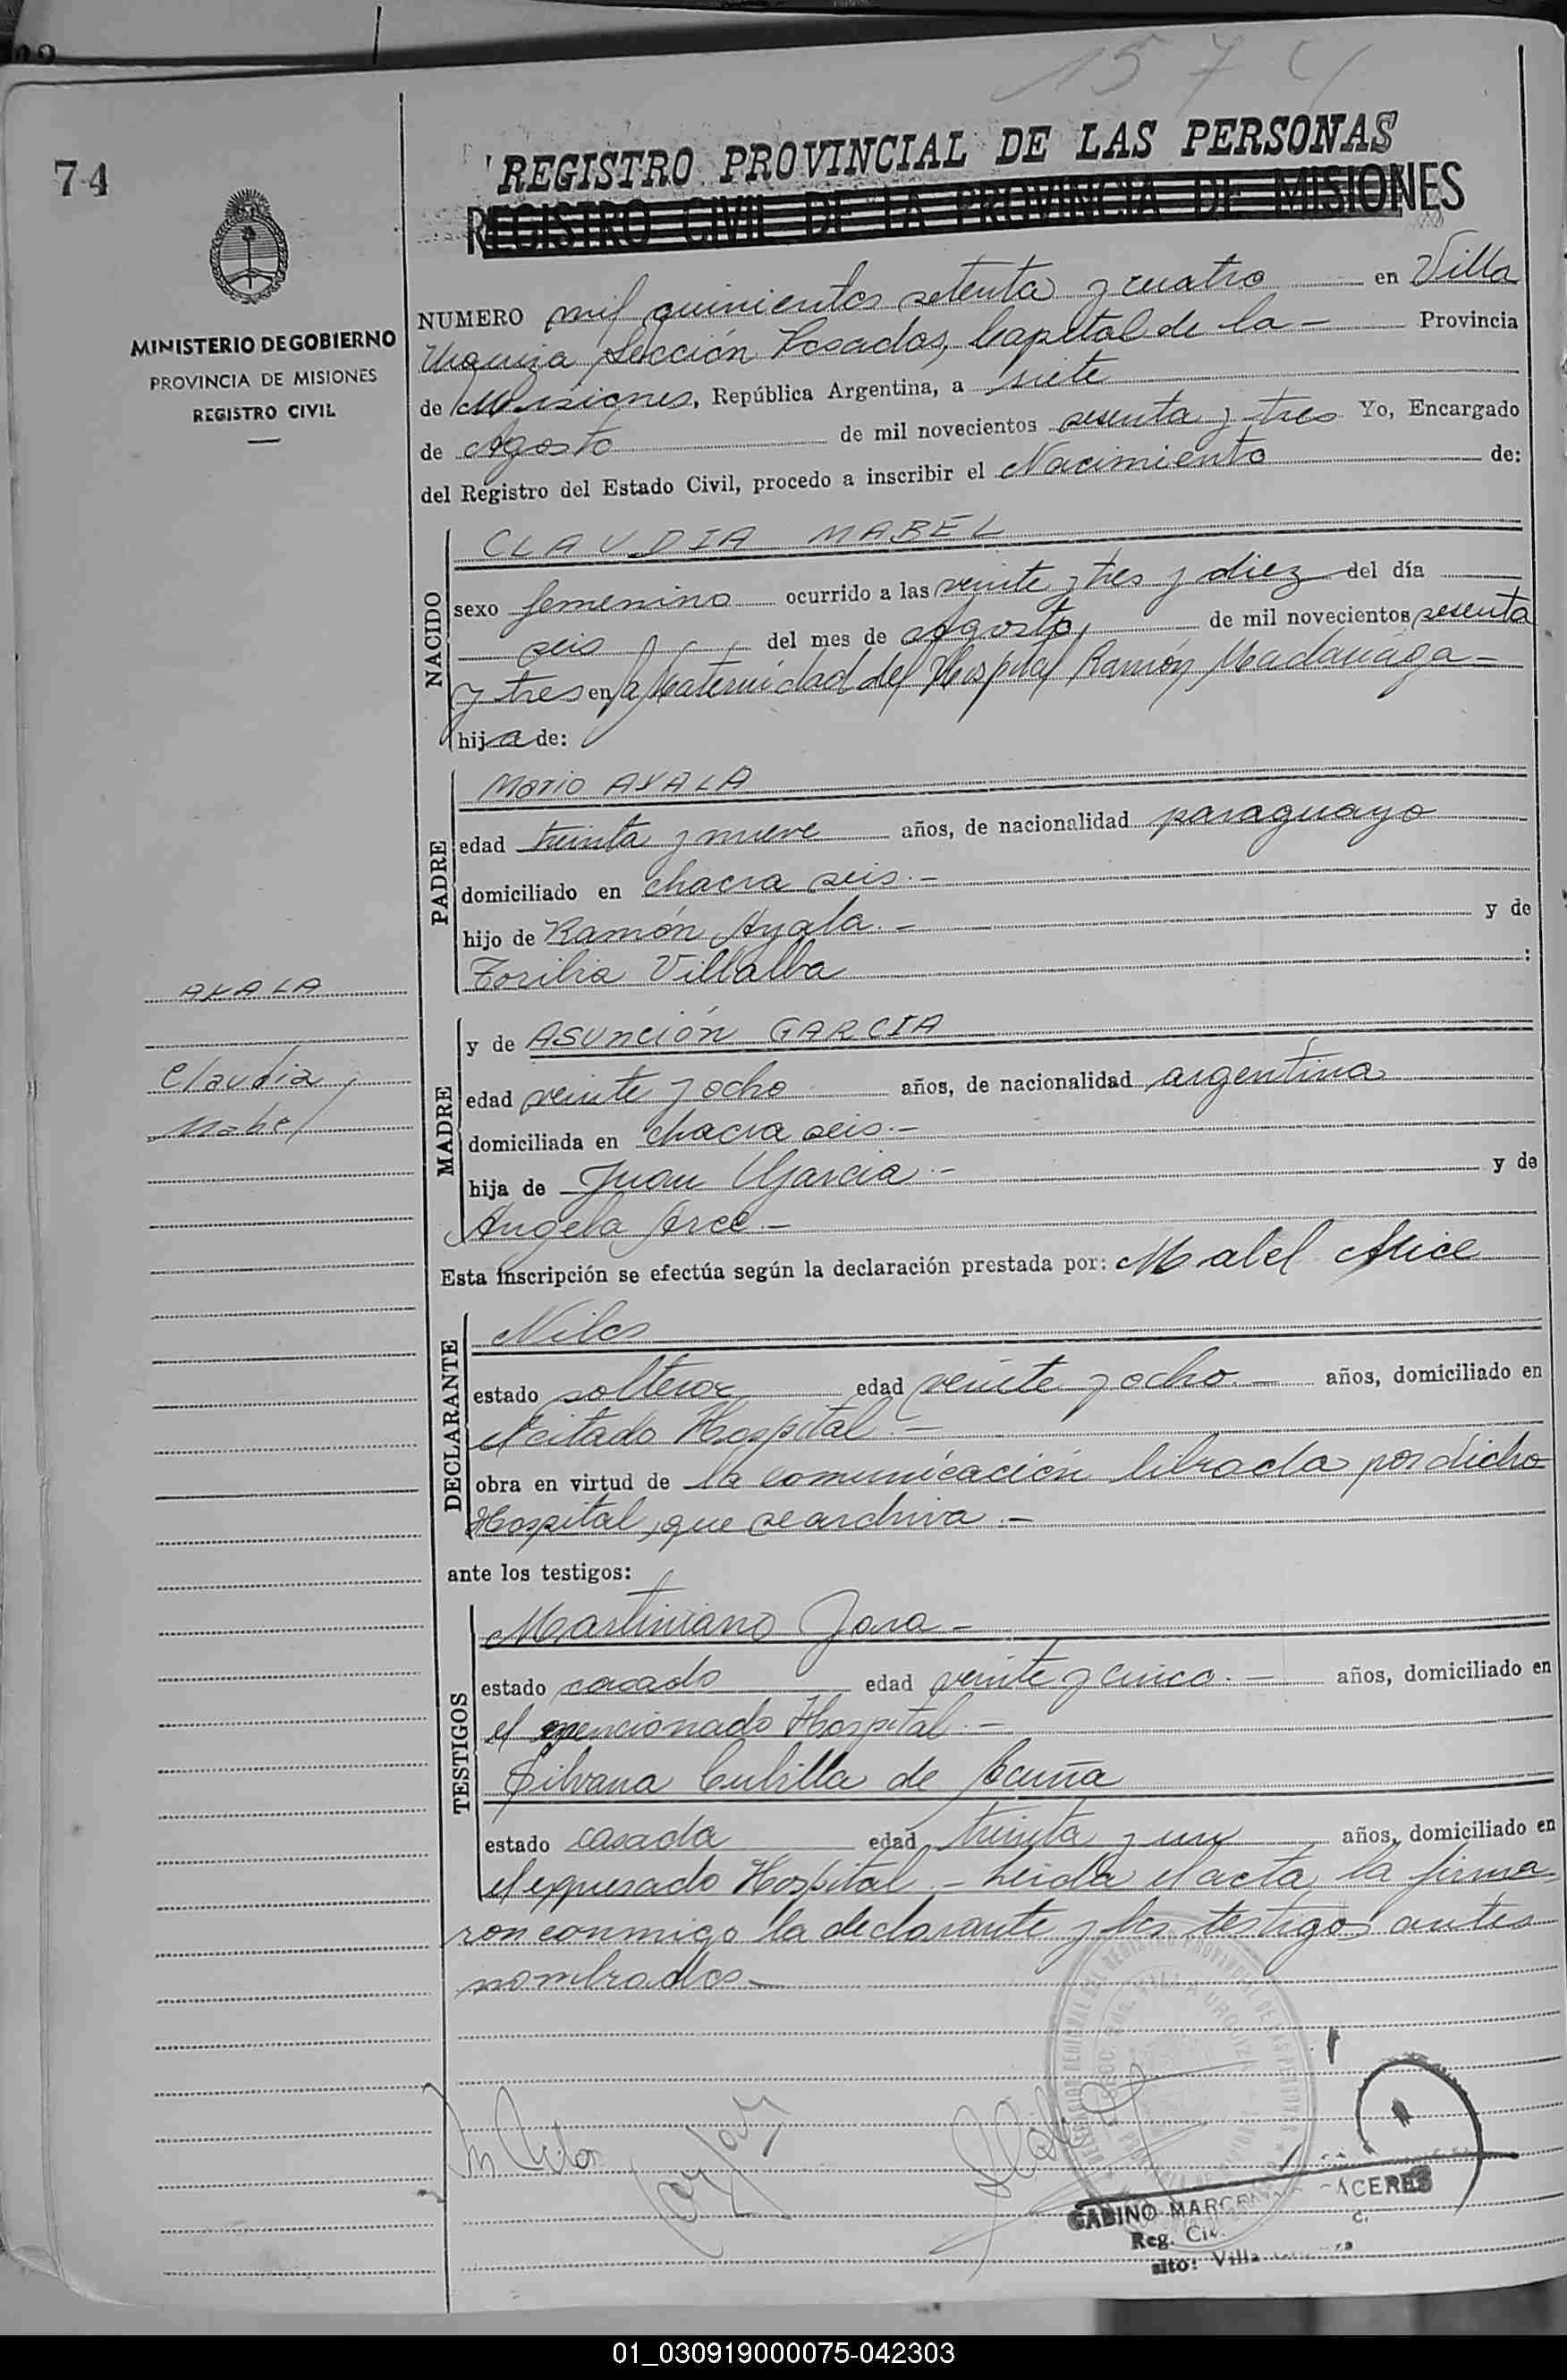 1574
74
REGISTRO PROVINCIAL DE LAS PERSONAS
REGISTRO CIVIL DE LA PROVINCIA DE MISIONES
MINISTERIO DE GOBIERNO
PROVINCIA DE MISIONES
REGISTRO CIVIL
NUMERO mil quinientos setenta y cuatro en Villa
Urquiza Sección Posadas, Capital de la - Provincia
de Misiones, República Argentina, a siete
de Agosto de mil novecientos sesenta y tres Yo, Encargado
del Registro del Estado Civil, procedo a inscribir el Nacimiento de:
NACIDO
CLAUDIA MABEL
sexo femenino ocurrido a las veinte y tres y diez del día
seis del mes de Agosto, de mil novecientos sesenta
y tres en la Maternidad del Hospital Ramón Madariaga -
hija de:
PADRE
Mario AYALA
edad treinta y nueve años, de nacionalidad paraguayo
domiciliado en chacra seis.-
hijo de Ramón Ayala.- y de
Toribia Villalba :
AYALA
Claudia
Mabel
MADRE
y de ASUNCIÓN GARCIA
edad veinte y ocho años, de nacionalidad argentina
domiciliada en chacra seis.-
hija de Juan Garcia.- y de
Angela Arce.-
Esta inscripción se efectúa según la declaración prestada por: Mabel Alice
DECLARANTE
Niles
estado soltera edad veinte y ocho.- años, domiciliado en
el citado Hospital.-
obra en virtud de la comunicación librada por dicho
Hospital, que se archiva.-
ante los testigos:
TESTIGOS
Martiniano Jara -
estado casado edad veinte y cinco.- años, domiciliado en
el mencionado Hospital.-
Silvana Cubilla de Acuña
estado casada edad treinta y un años, domiciliado en
el expresado Hospital.- Leída el acta, la firma-
ron conmigo la declarante y los testigos antes
nombrados.-
GABINO ACERES
Reg. Civ.
Villa
01_030919000075-042303